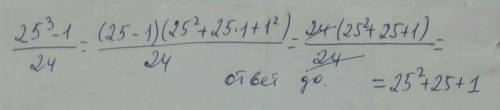 25³-1/24 = (25-1)(25²+25·1+1²)/24 = 24·(25²+25+1)/24 =
ответ до. = 25²+25+1